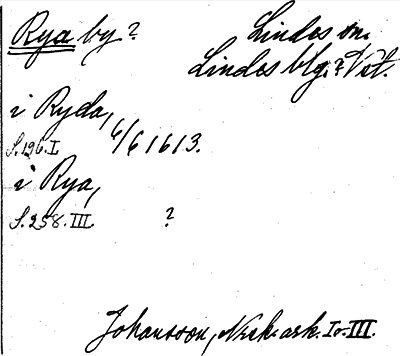 Rya by?
Lindes sn.
Lindes blg.? Vst.
i Ryda, 6/6 1613.
S. 126. I
i Rya,
S. 258. III. ?
Johansson, Norsk. ark. I o. III.